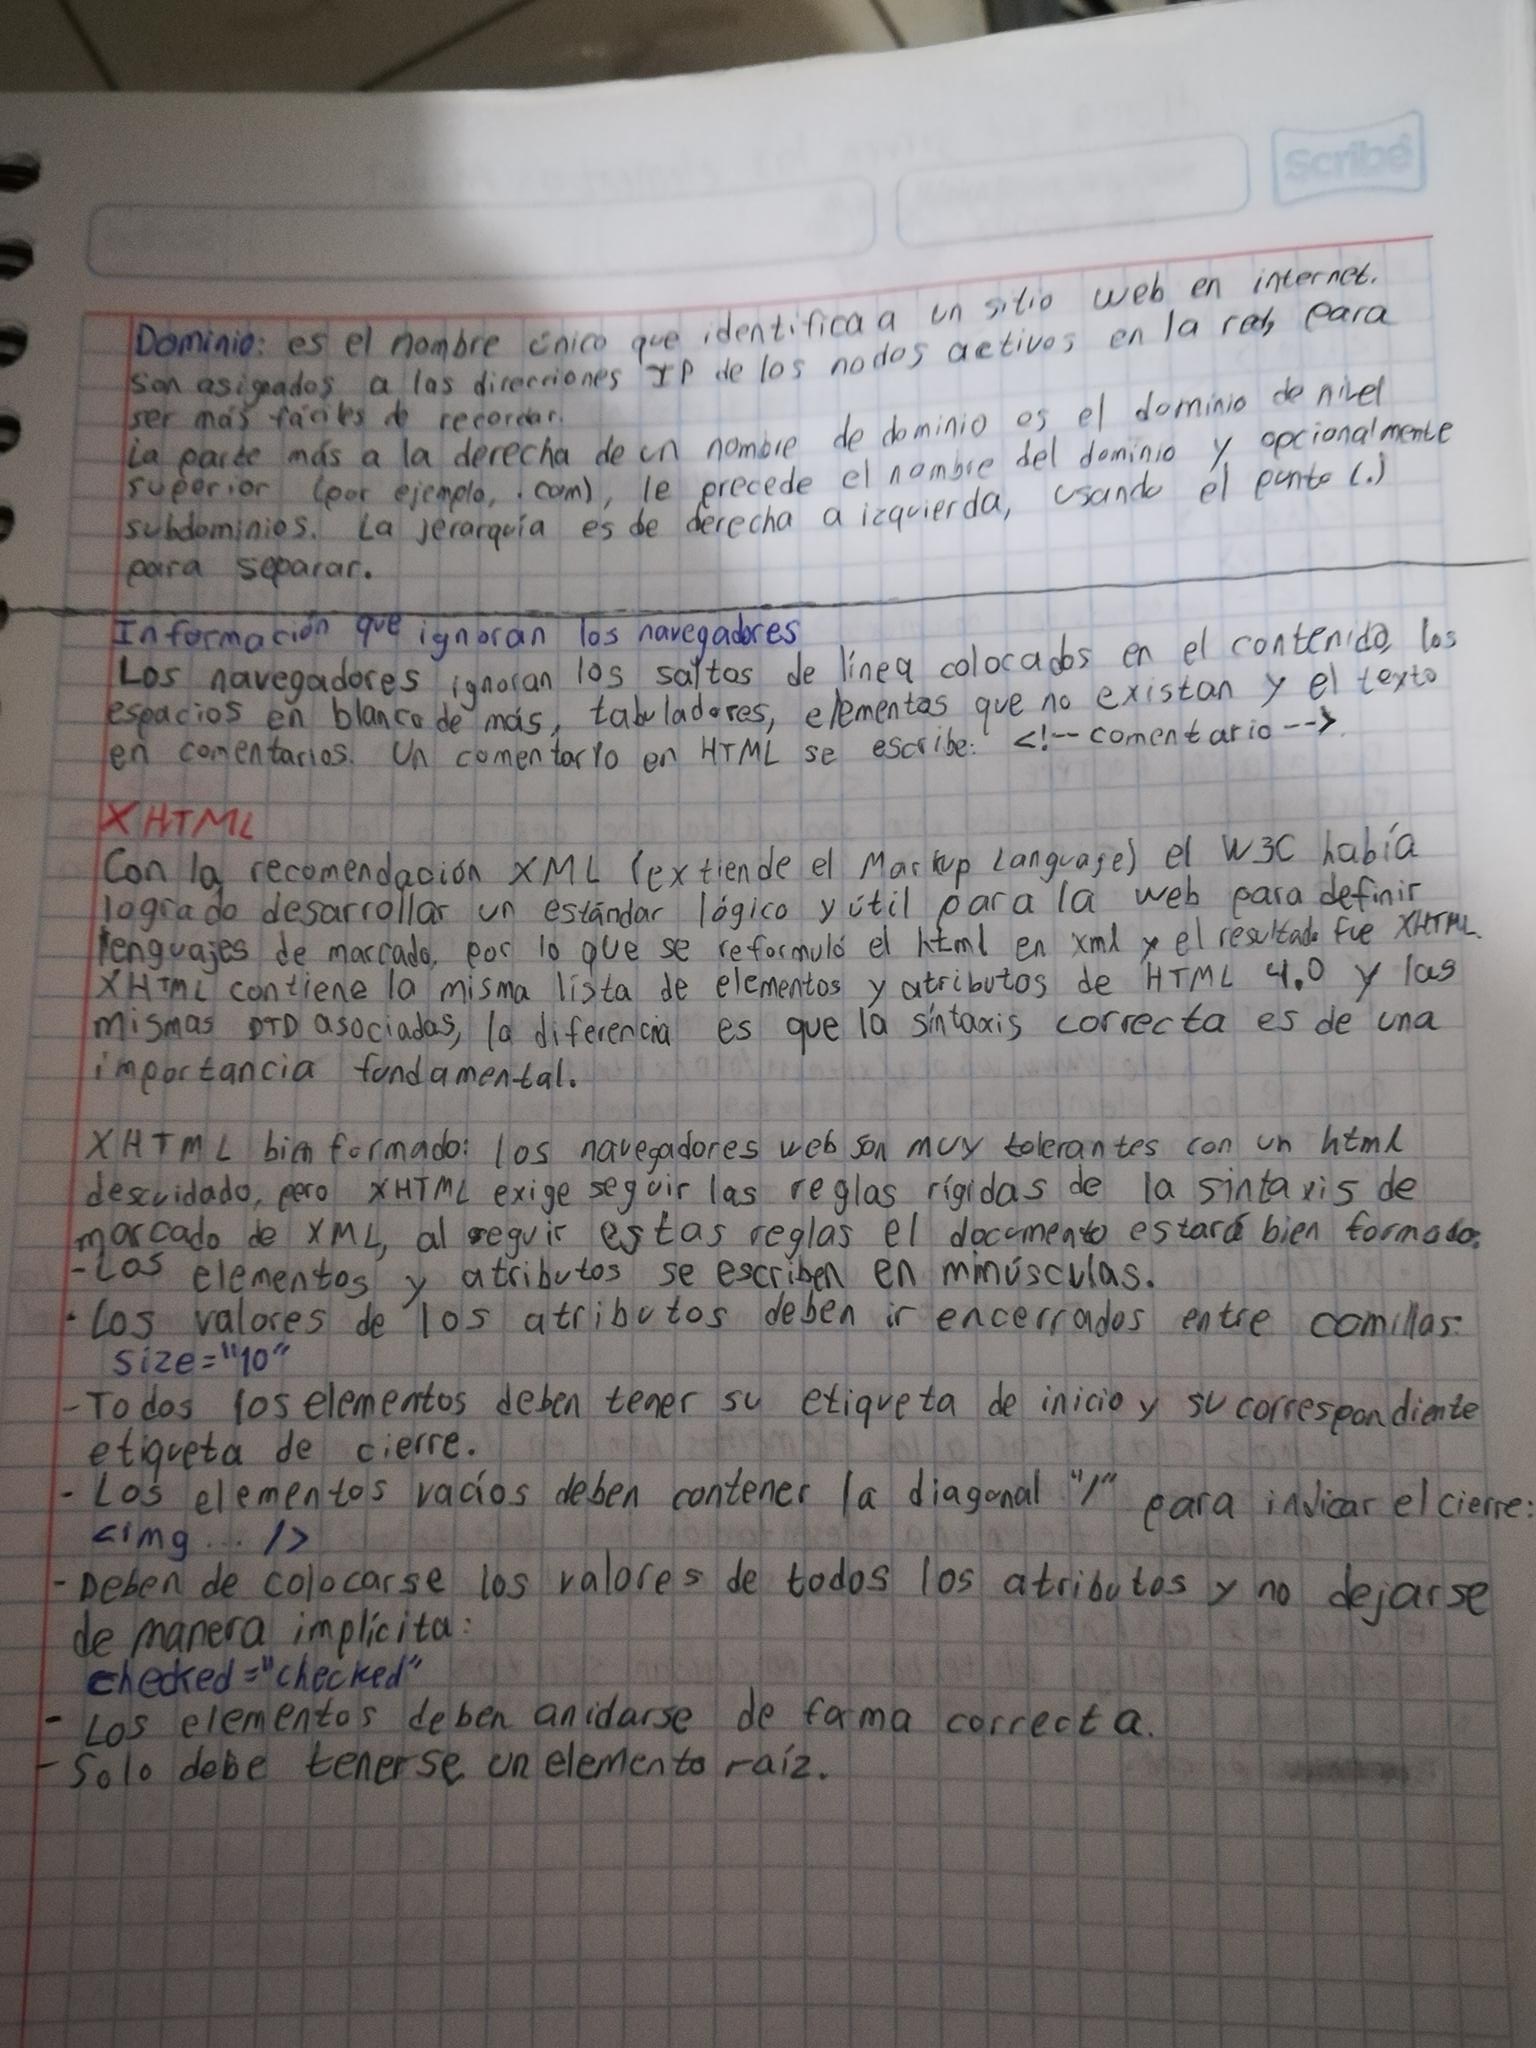 Scribe
Dominio: es el nombre único que identifica a un sitio web en internet.
son asignados a las direcciones IP de los nodos activos en la red, para
ser más fáciles de recordar.
La parte más a la derecha de un nombre de dominio es el dominio de nivel
superior (por ejemplo, .com), le precede el nombre del dominio y opcionalmente
subdominios. La jerarquía es de derecha a izquierda, usando el punto (.)
para separar.
Información que ignoran los navegadores
Los navegadores ignoran los saltos de línea colocados en el contenido, los
espacios en blanco de más, tabuladores, elementos que no existan y el texto
en comentarios. Un comentario en HTML se escribe: <!-- comentario -->.
XHTML
Con la recomendación XML (extiende el Markup Language) el W3C había
logrado desarrollar un estándar lógico y útil para la web para definir
lenguajes de marcado, por lo que se reformuló el html en xml y el resultado fue XHTML.
XHTML contiene la misma lista de elementos y atributos de HTML 4.0 y las
mismas DTD asociadas, la diferencia es que la síntaxis correcta es de una
importancia fundamental.
XHTML bien formado: los navegadores web son muy tolerantes con un html
descuidado, pero XHTML exige seguir las reglas rígidas de la sintaxis de
marcado de XML, al seguir estas reglas el documento estará bien formado.
- Los elementos y atributos se escriben en minúsculas.
- Los valores de los atributos deben ir encerrados entre comillas:
size="10"
- Todos los elementos deben tener su etiqueta de inicio y su correspondiente
etiqueta de cierre.
- Los elementos vacíos deben contener la diagonal "/" para indicar el cierre:
<img ... />
- Deben de colocarse los valores de todos los atributos y no dejarse
de manera implícita:
checked="checked"
- Los elementos deben anidarse de forma correcta.
- Solo debe tenerse un elemento raíz.